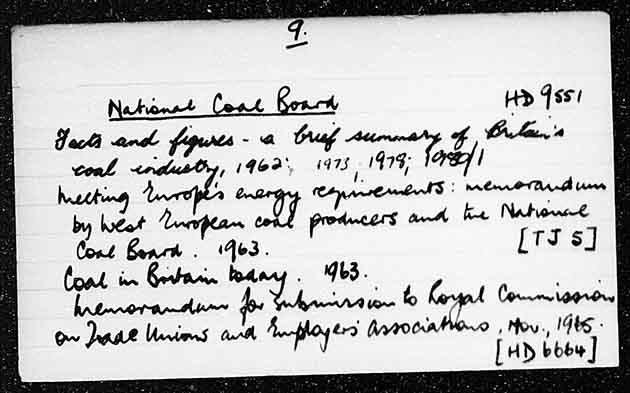 9.
National Coal Board HD 9551
Facts and figures - a brief summary of Britain's
coal industry, 1962; 1973, 1978; 1980/1
Meeting Europe's energy requirements: memorandum
by West European coal producers and the National
Coal Board. 1963. [TJ 5]
Coal in Britain today. 1963.
Memorandum for submission to Royal Commission
on Trade Unions and Employers' Associations, Nov., 1965.
[HD 6664]